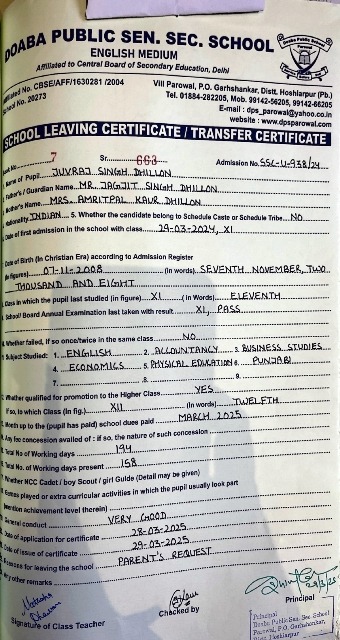 DOABA PUBLIC SEN. SEC. SCHOOL
ENGLISH MEDIUM
Affiliated to Central Board of Secondary Education, Delhi
Affiliated No. CBSE/AFF/1630281 /2004
School No. 20273
Vill Parowal, P.O. Garhshankar, Distt. Hoshiarpur (Pb.)
Tel. 01884-282205, Mob. 99142-56205, 99142-66205
E-mail : dps_parowal@yahoo.co.in
website : www.dpsparowal.com
SCHOOL LEAVING CERTIFICATE / TRANSFER CERTIFICATE
Book No. 7 Sr. 663 Admission No. SSC-U-938/24
Name of Pupil JUVRAJ SINGH DHILLON
Father's / Guardian Name MR. JAGJIT SINGH DHILLON
Mother's Name MRS. AMRITPAL KAUR DHILLON
Nationality INDIAN 5. Whether the candidate belong to Schedule Caste or Schedule Tribe NO
Date of first admission in the school with class 29-03-2024, XI
Date of Birth (In Christian Era) according to Admission Register
(in figures) 07-11-2008 (In words) SEVENTH NOVEMBER, TWO
THOUSAND AND EIGHT
Class in which the pupil last studied (in figure) XI (In Words) ELEVENTH
School/ Board Annual Examination last taken with result XI, PASS
Whether failed, if so once/twice in the same class NO
Subject Studied: 1. ENGLISH 2. ACCOUNTANCY 3. BUSINESS STUDIES
4. ECONOMICS 5. PHYSICAL EDUCATION 6. PUNJABI
7. 8. 9.
Whether qualified for promotion to the Higher Class YES
If so, to which Class (In fig.) XII (In words) TWELFTH
Month up to the (pupil has paid) school dues paid MARCH 2025
Any fee concession availed of : if so, the nature of such concession
Total No of Working days 194
Total No. of Working days present 158
Whether NCC Cadet / boy Scout / girl Guide (Detail may be given)
Games played or extra curricular activities in which the pupil usually look part
(mention achievement level therein)
General conduct VERY GOOD
Date of application for certificate 28-03-2025
Date of issue of certificate 29-03-2025
Reasons for leaving the school PARENT'S REQUEST
Any other remarks
Signature of Class Teacher
Checked by
Principal
Principal
Doaba Public Sen. Sec School
Parowal, P.O. Garhshankar,
Distt. Hoshiarpur